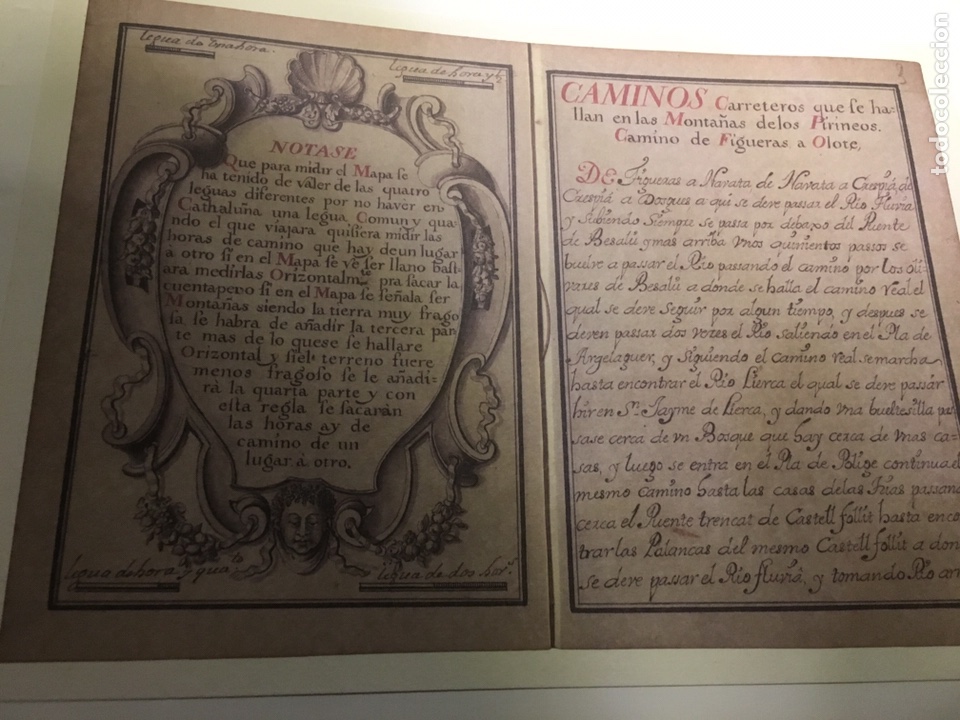 legua de una hora.
legua de hora y ½
NOTASE
Que para midir el Mapa se
ha tenido de valer de las quatro
leguas diferentes por no haver en
Cathaluña una legua Comun y qua-
ndo el que viajara quisiera midir las
horas de camino que hay de un lugar
a otro si en el Mapa se ve ser llano bast-
ara medirlas Orizontalm.te pra sacar la
cuenta pero si en el Mapa se señala ser
Montañas siendo la tierra muy frago
sa, se habra de añadir la tercera par
te mas de lo que se hallare
Orizontal y si el terreno fuere
menos fragoso se le añadi-
rà la quarta parte y con
esta regla se sacarán
las horas ay de
camino de un
lugar à otro.
legua de hora y qua.to
legua de dos hor.s
3
CAMINOS Carreteros que se ha-
llan en las Montañas de los Pirineos.
Camino de Figueras a Olote,
DE Figueras a Navata de Navata a Crespià, de
Crespià a Dosques a qui se deve passar el Rio Fluvia
y subiendo siempre se passa por debaxo del Puente
de Besalù y mas arriba unos quinientos passos se
buelve a passar el Rio passando el camino por los oli-
vares de Besalu a donde se halla el camino real el
qual se deve seguir por algun tiempo, y despues se
deven passar dos vezes el Rio saliendo en el Pla de
Argelaguer, y siguiendo el camino real se marcha
hasta encontrar el Rio Lierca el qual se deve passar
hir en S.n Jayme de Lierca, y dando una bueltesilla pa
sase cerca de un Bosque que hay cerca de unas ca-
sas, y luego se entra en el Pla de Polige continua el
mesmo camino hasta las casas de las Fuas passan
cerca el Puente trencat de Castell follit hasta enco
trar las Palancas del mesmo Castell follit a don
se deve passar el Rio fluvià, y tomando Rio arr
todocoleccion